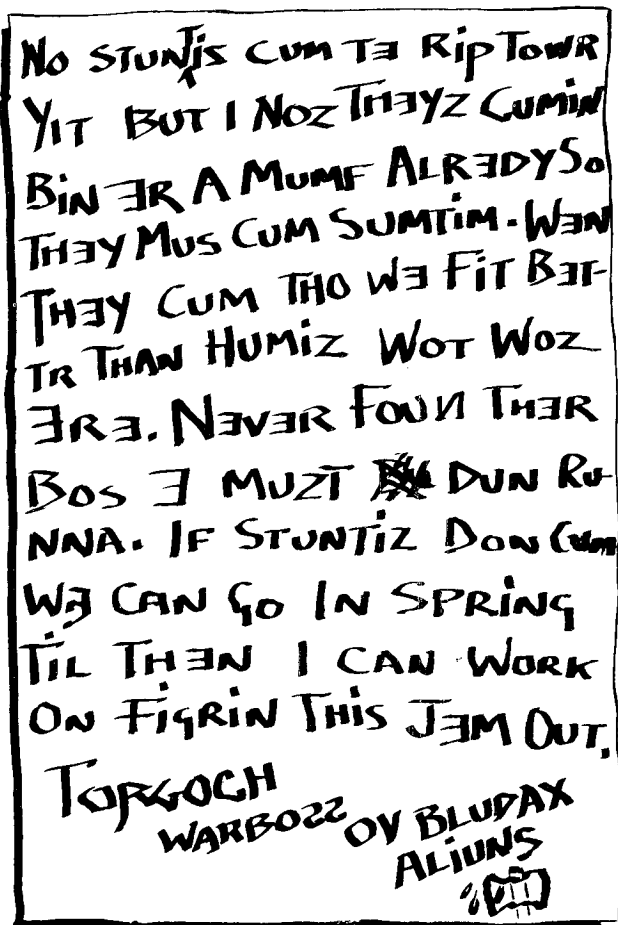 No STUNTis CUM TE RiP TOWR
YiT BUT I NOZ THEYZ CUMIN
BiN ER A MUMF ALREDY SO
THEY MUS CUM SUMTiM. WEN
THEY CUM THO WE FiT BET-
TR THAN HUMiZ WOT WOZ
ERE. NEVER FOUN THER
BOS E MUZT DUN RU-
NNA. IF STUNTiZ DON CUM
WE CAN GO IN SPRiNG
TiL THEN I CAN WORK
ON FiGRiN THiS JEM OUT.
TORGOCH
WARBOZZ OV BLUDAX
ALiUNS